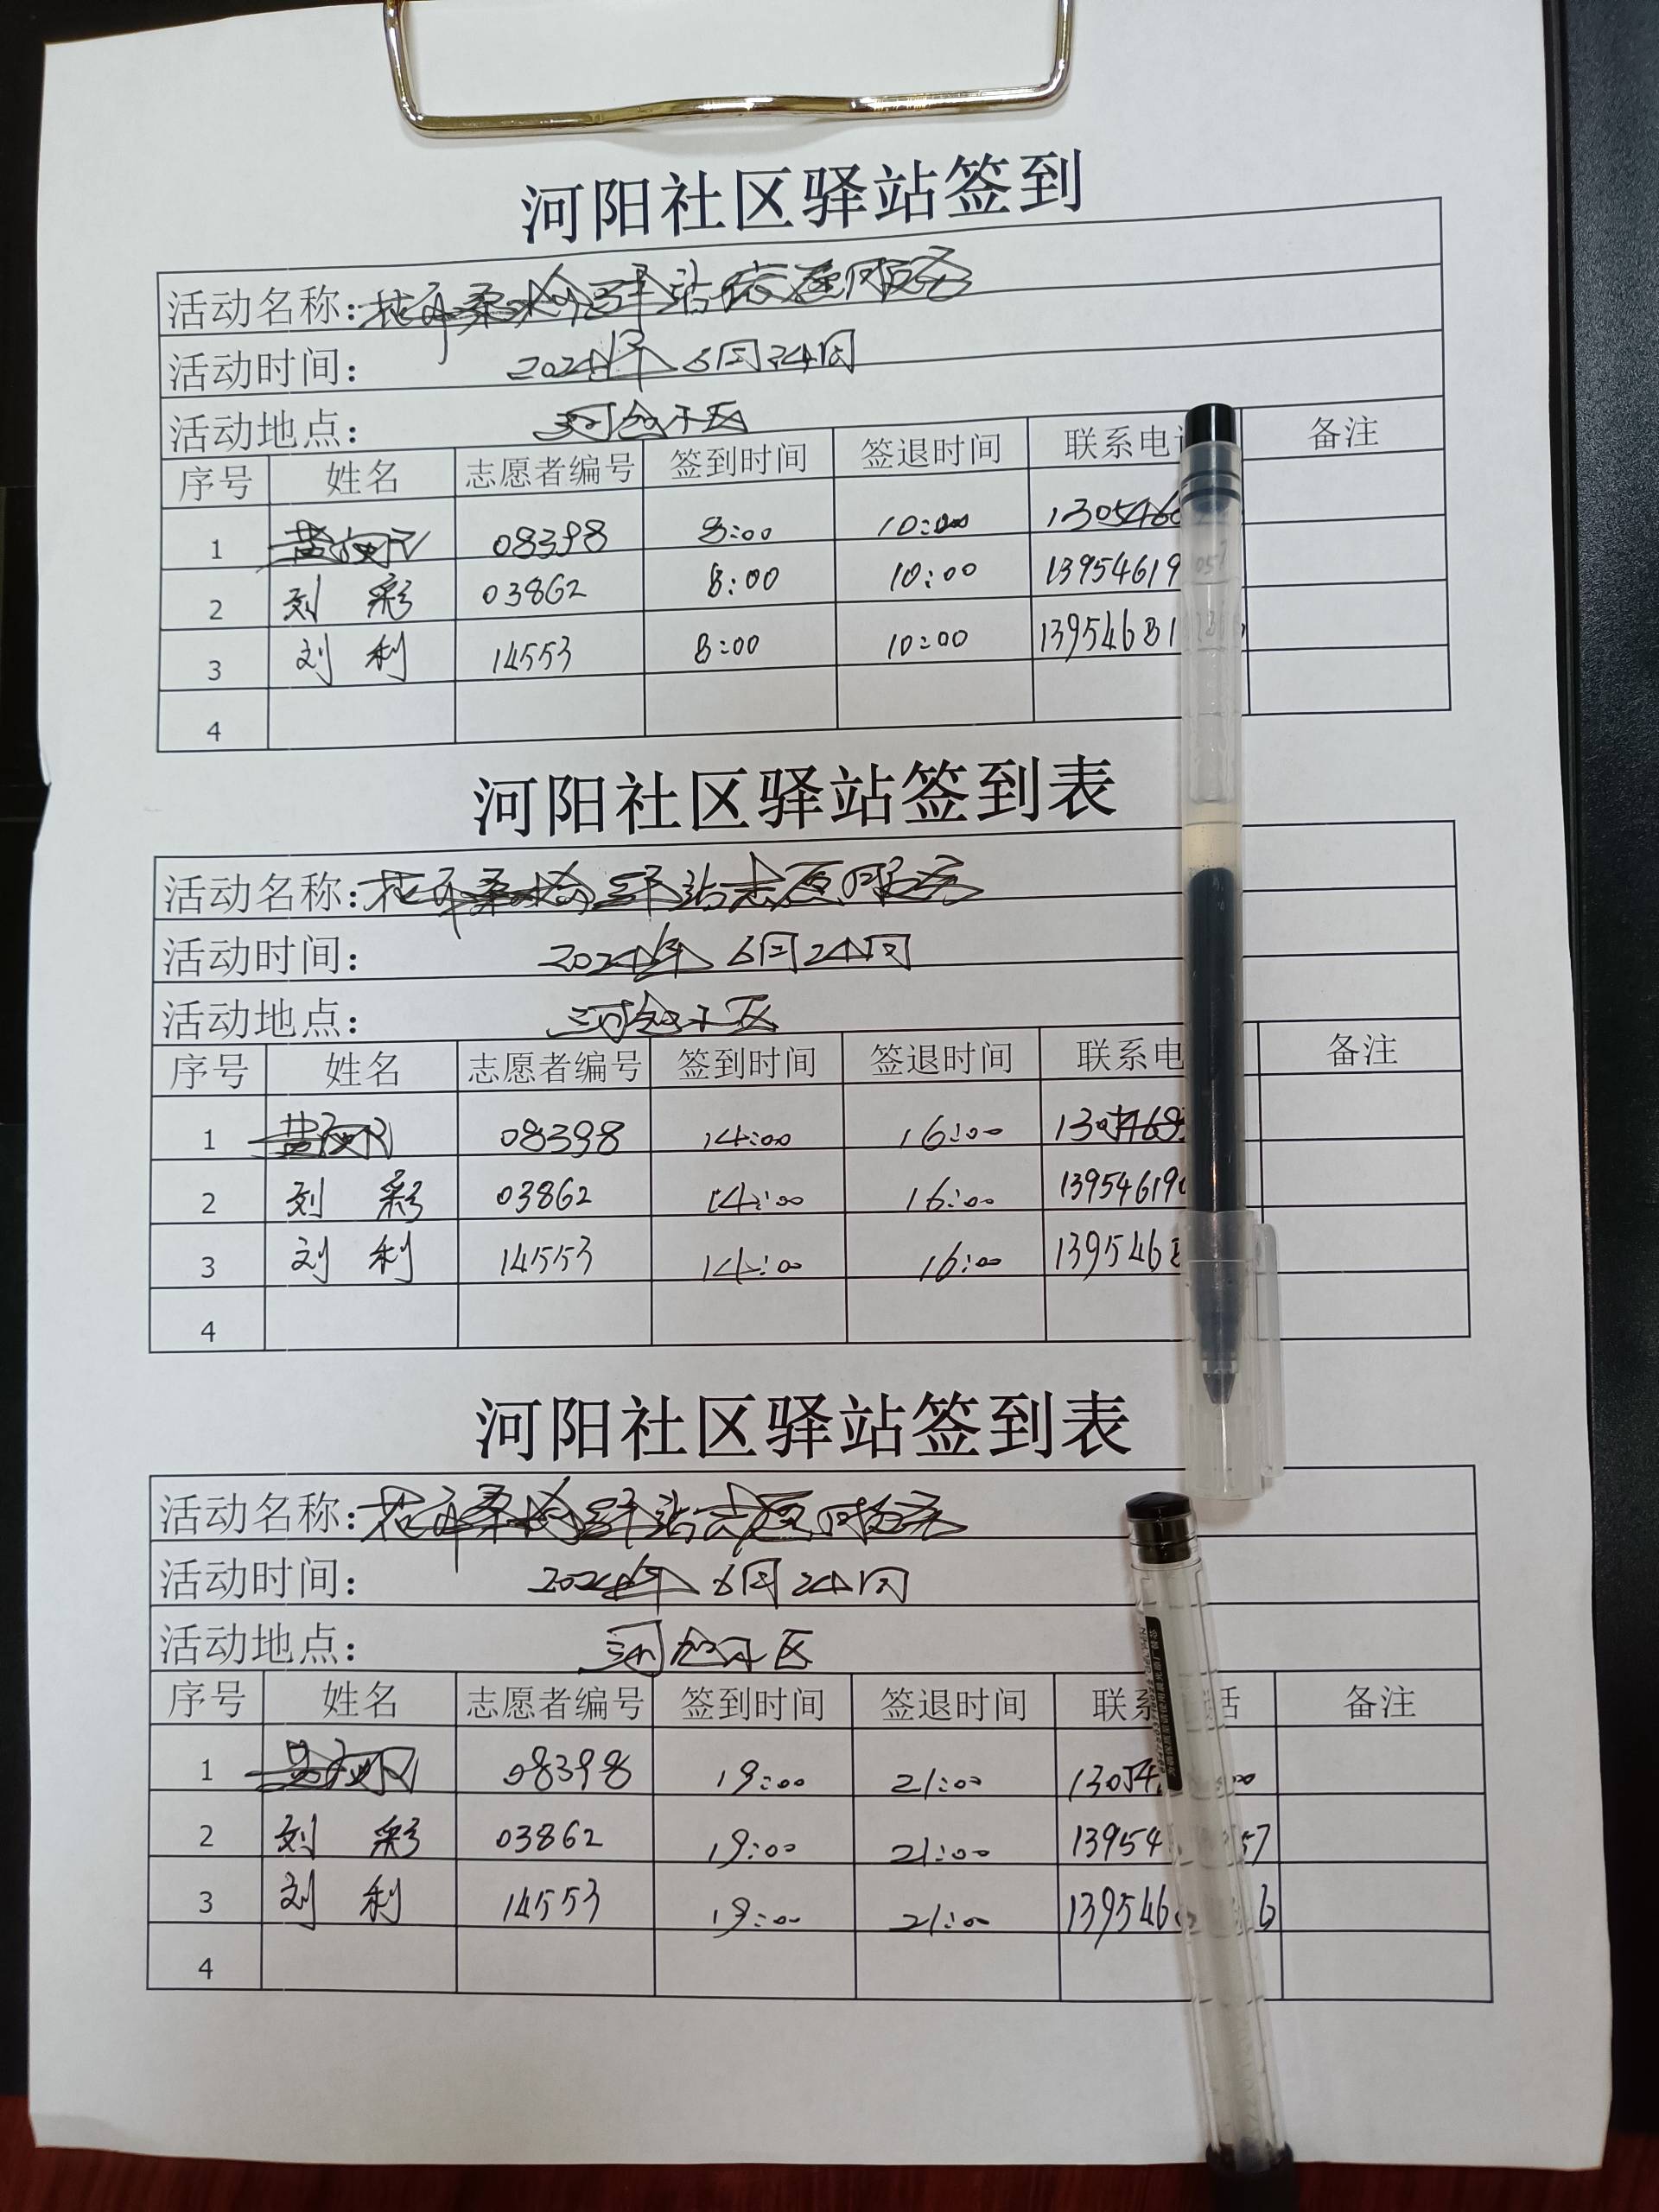 河阳社区驿站签到
活动名称：
活动时间： 2024年 6月24日
活动地点： 小区
序号 姓名 志愿者编号 签到时间 签退时间 联系电话 备注
1 08398 8:00 10:00 1305466
2 刘 彩 03862 8:00 10:00 13954619057
3 刘 利 14553 8:00 10:00 13954681
4
河阳社区驿站签到表
活动名称： 驿站志愿服务
活动时间： 2024年 6月24日
活动地点： 小区
序号 姓名 志愿者编号 签到时间 签退时间 联系电 备注
1 08398 14:00 16:00
2 刘 彩 03862 14:00 16:00 13954619
3 刘 利 14553 14:00 16:00 139546
4
河阳社区驿站签到表
活动名称： 驿站志愿服务
活动时间： 2024年 6月24日
活动地点： 小区
序号 姓名 志愿者编号 签到时间 签退时间 联系 话 备注
1 08398 19:00 21:00 13054
2 刘 彩 03862 19:00 21:00 13954 57
3 刘 利 14553 19:00 21:00 139546 6
4